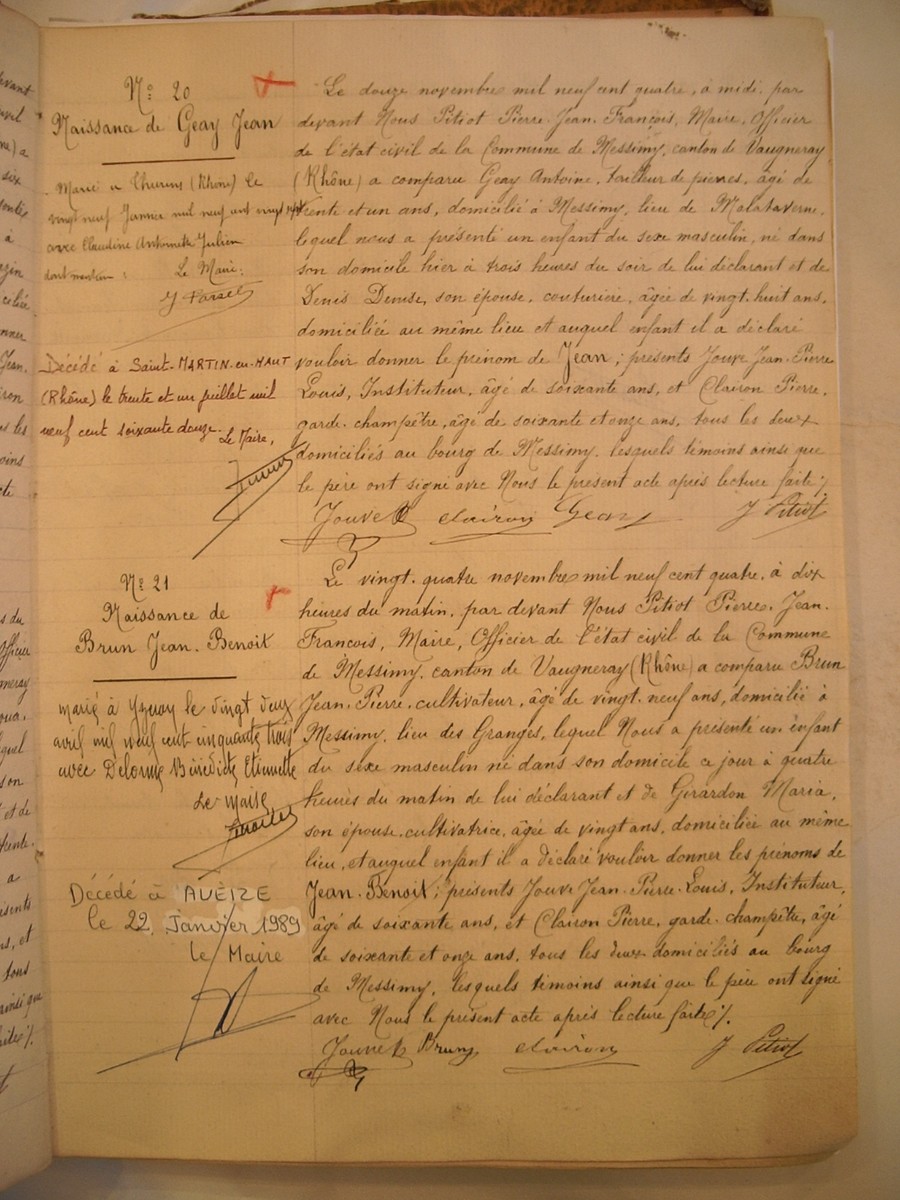 N° 20
Naissance de Geay Jean
Marié à Thurins (Rhône) le
vingt neuf Janvier mil neuf cent vingt sept
avec Claudine Antoinette Julien
dont mention : Le Maire :
Décédé à Saint-MARTIN-en-HAUT
(Rhône) le trente et un juillet mil
neuf cent soixante douze. Le Maire,
Le douze novembre mil neuf cent quatre, à midi, par
devant Nous Pitiot Pierre-Jean-François, Maire, Officier
de l'état civil de la Commune de Messimy, canton de Vaugneray
(Rhône) a comparu Geay Antoine, tailleur de pierres, âgé de
trente et un ans, domicilié à Messimy, lieu de Malataverne,
lequel nous a présenté un enfant du sexe masculin, né dans
son domicile hier à trois heures du soir de lui déclarant et de
Denis Denise, son épouse, couturière, âgée de vingt-huit ans,
domiciliée au même lieu et auquel enfant il a déclaré
vouloir donner le prénom de Jean ; présents Jouve Jean-Pierre
Louis, Instituteur, âgé de soixante ans, et Clairon Pierre,
garde-champêtre, âgé de soixante et onze ans, tous les deux
domiciliés au bourg de Messimy, lesquels témoins ainsi que
le père ont signé avec Nous le présent acte après lecture faite ;
Jouve Clairon Geay J Pitiot
N° 21
Naissance de
Brun Jean-Benoit
Marié à Yzeron le vingt deux
avril mil neuf cent cinquante trois
avec Delorme Bénédicte Etiennette
Le Maire
Décédé à AVEIZE
le 22 Janvier 1989
Le Maire
Le vingt-quatre novembre mil neuf cent quatre, à dix
heures du matin, par devant Nous Pitiot Pierre-Jean-
François, Maire, Officier de l'état civil de la Commune
de Messimy, canton de Vaugneray (Rhône) a comparu Brun
Jean-Pierre, cultivateur, âgé de vingt-neuf ans, domicilié à
Messimy, lieu des Granges, lequel Nous a présenté un enfant
du sexe masculin né dans son domicile ce jour à quatre
heures du matin de lui déclarant et de Girardon Maria,
son épouse, cultivatrice, âgée de vingt ans, domiciliée au même
lieu, et auquel enfant il a déclaré vouloir donner les prénoms de
Jean-Benoit ; présents Jouve Jean-Pierre-Louis, Instituteur,
âgé de soixante ans, et Clairon Pierre, garde-champêtre, âgé
de soixante et onze ans, tous les deux domiciliés au bourg
de Messimy, lesquels témoins ainsi que le père ont signé
avec Nous le présent acte après lecture faite %.
Jouve Brun Clairon J Pitiot